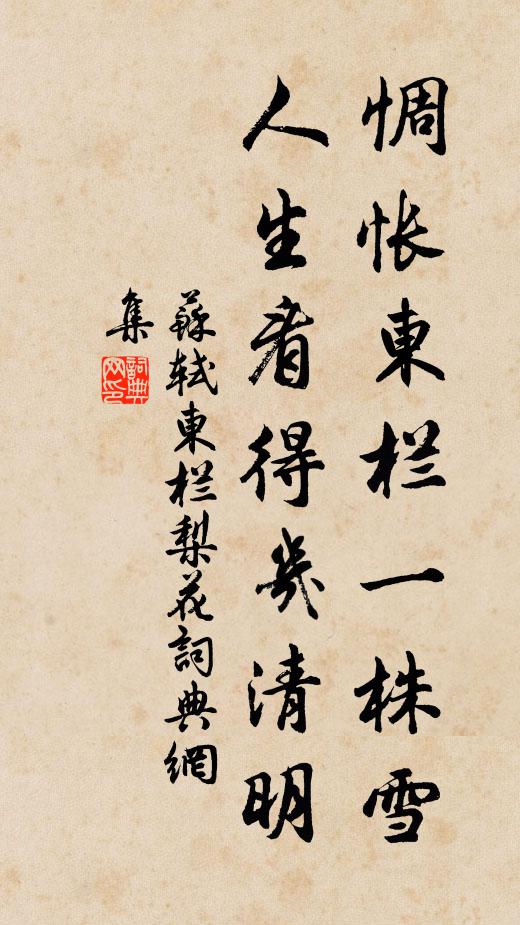 惆怅東栏一株雪
人生看得幾清明
蘇轼東栏梨花詞典網
集
詞典
网印